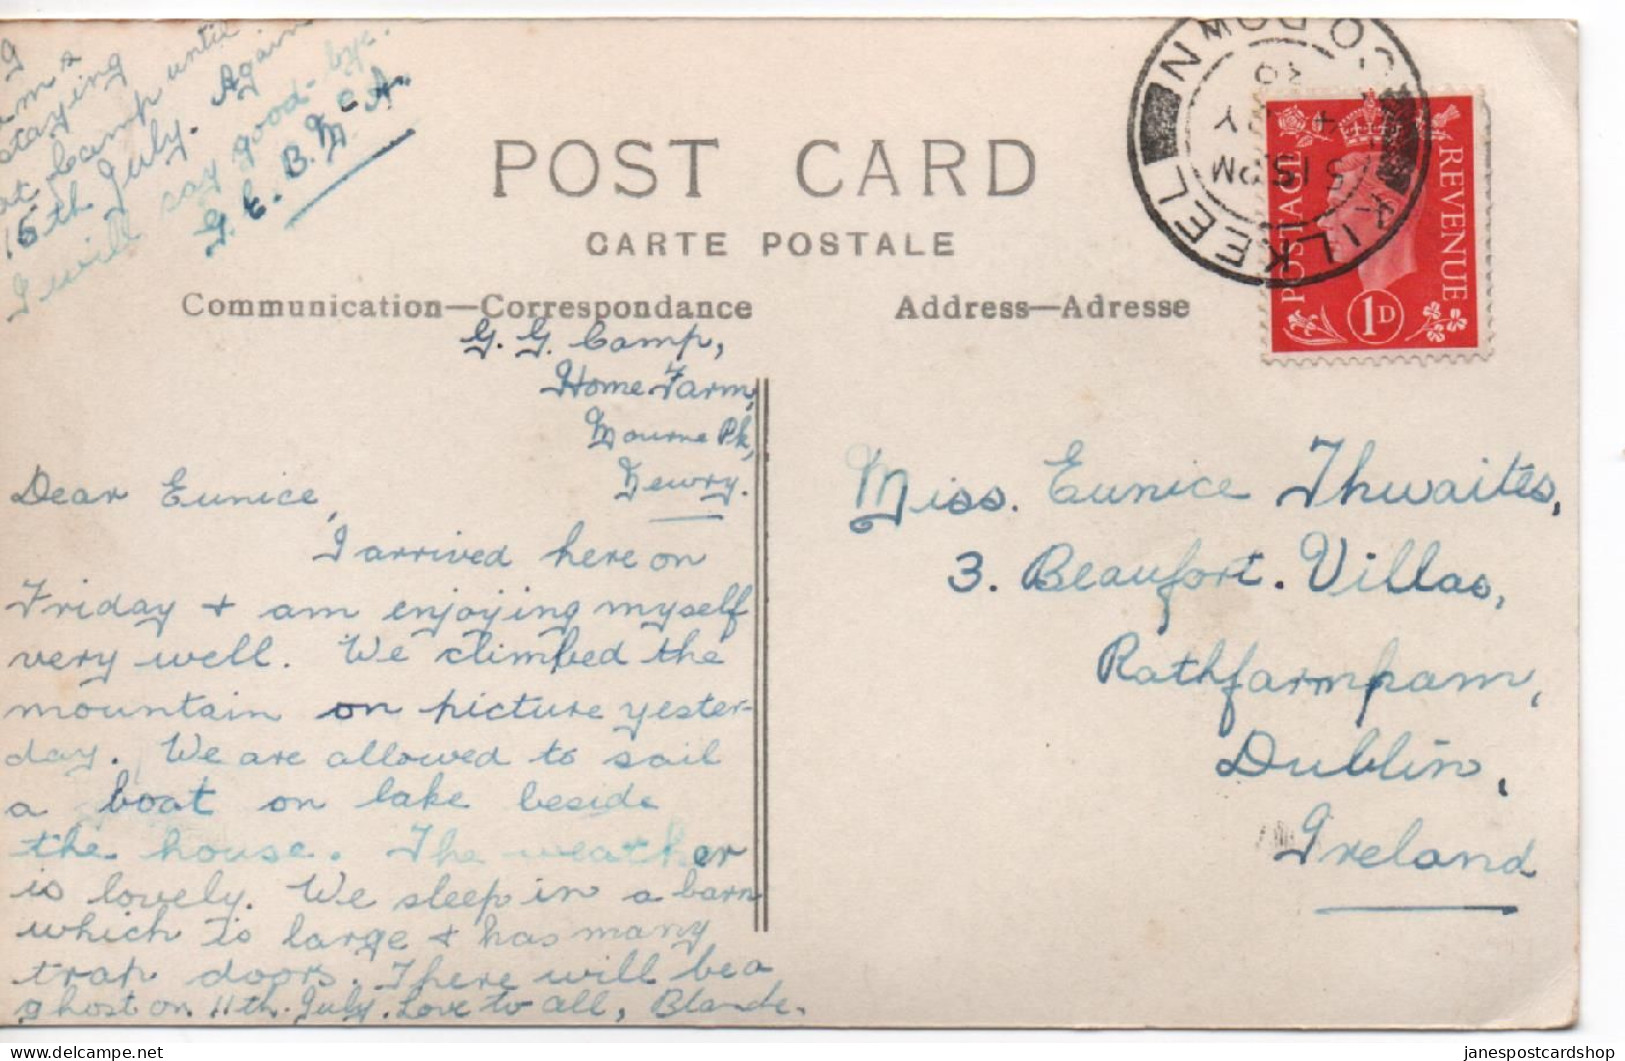 I
am
staying
at camp until
15th July. Again
I will say good-bye.
G. E. B. M. A.
POST CARD
CARTE POSTALE
Communication—Correspondance
Address—Adresse
KILKEEL
CO DOWN
5 15 PM
POSTAGE
REVENUE
1D
G. G. Camp,
Home Farm,
Mourne Pk,
Newry.
Dear Eunice,
I arrived here on
Friday + am enjoying myself
very well. We climbed the
mountain on picture yester-
day. We are allowed to sail
a boat on lake beside
the house. The weather
is lovely. We sleep in a barn
which is large + has many
trap doors. There will be a
ghost on 11th. July. Love to all,
Miss. Eunice Thwaites,
3. Beaufort. Villas,
Rathfarmpam,
Dublin,
Ireland
janespostcardshop